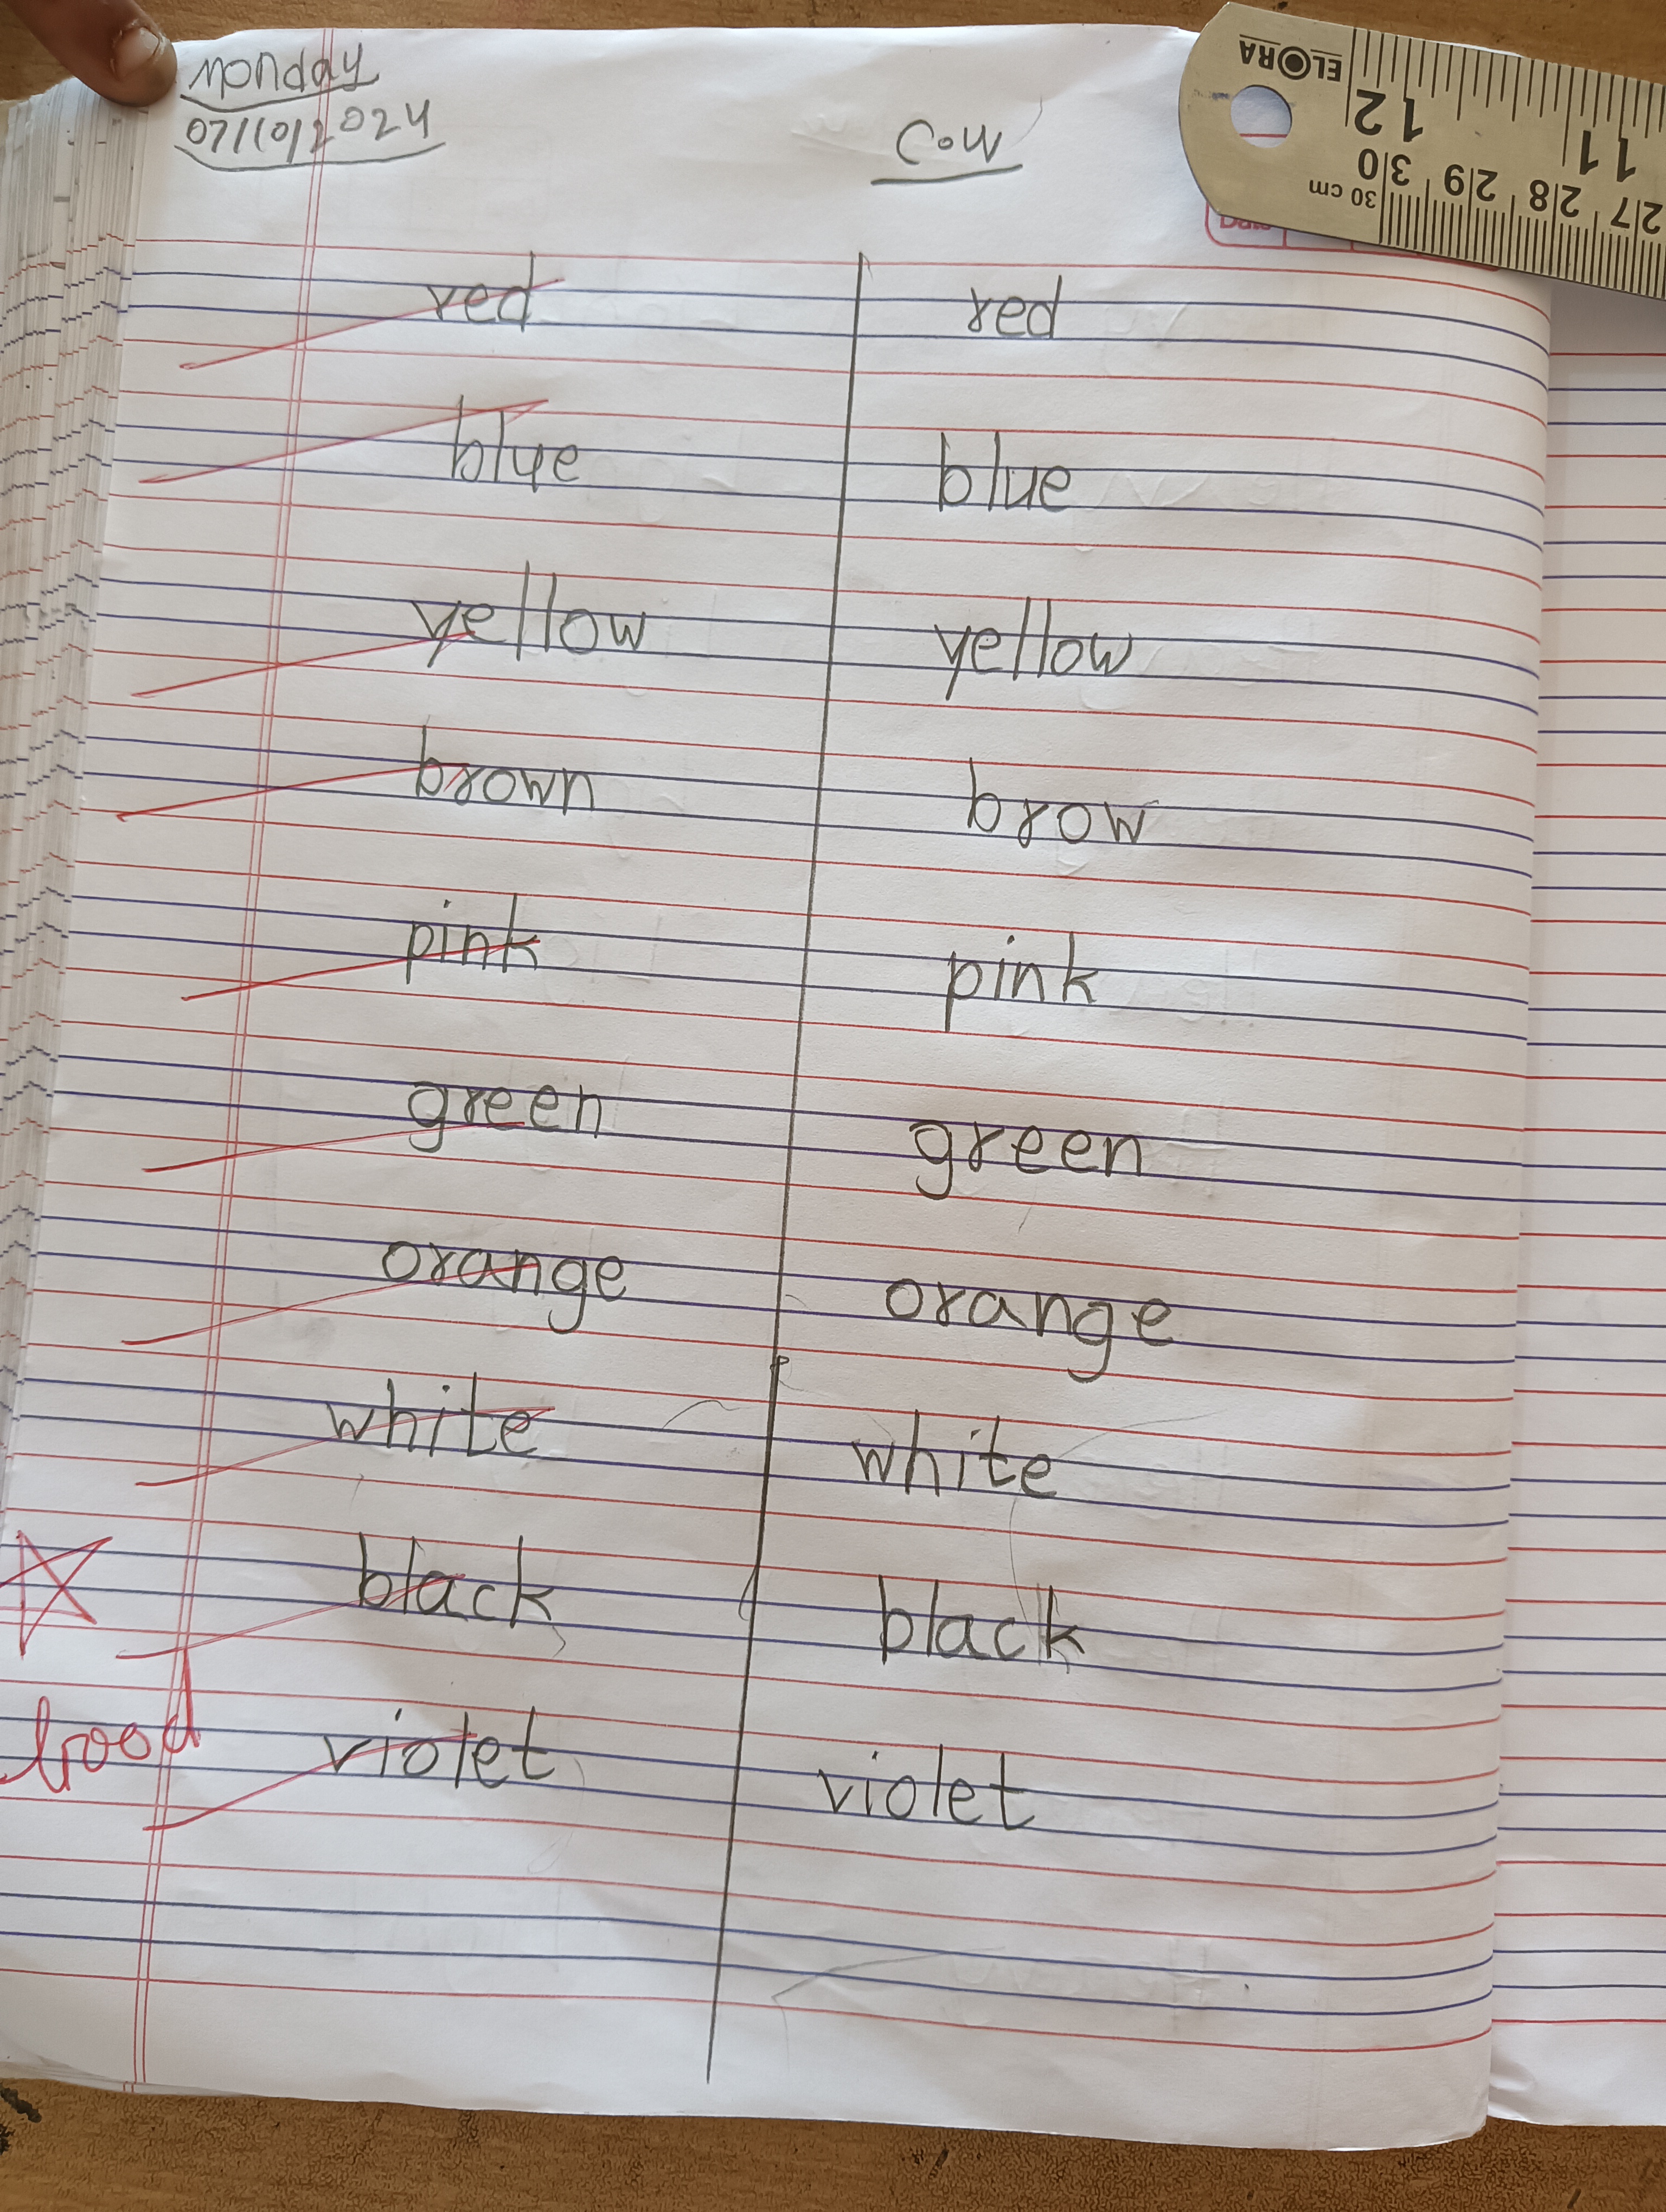 Monday
07/10/2024
Cow
ELORA
12 11
30 cm 30 29 28 27
red red
blue blue
yellow yellow
brown brow
pink pink
green green
orange orange
white white
black black
Good
violet violet